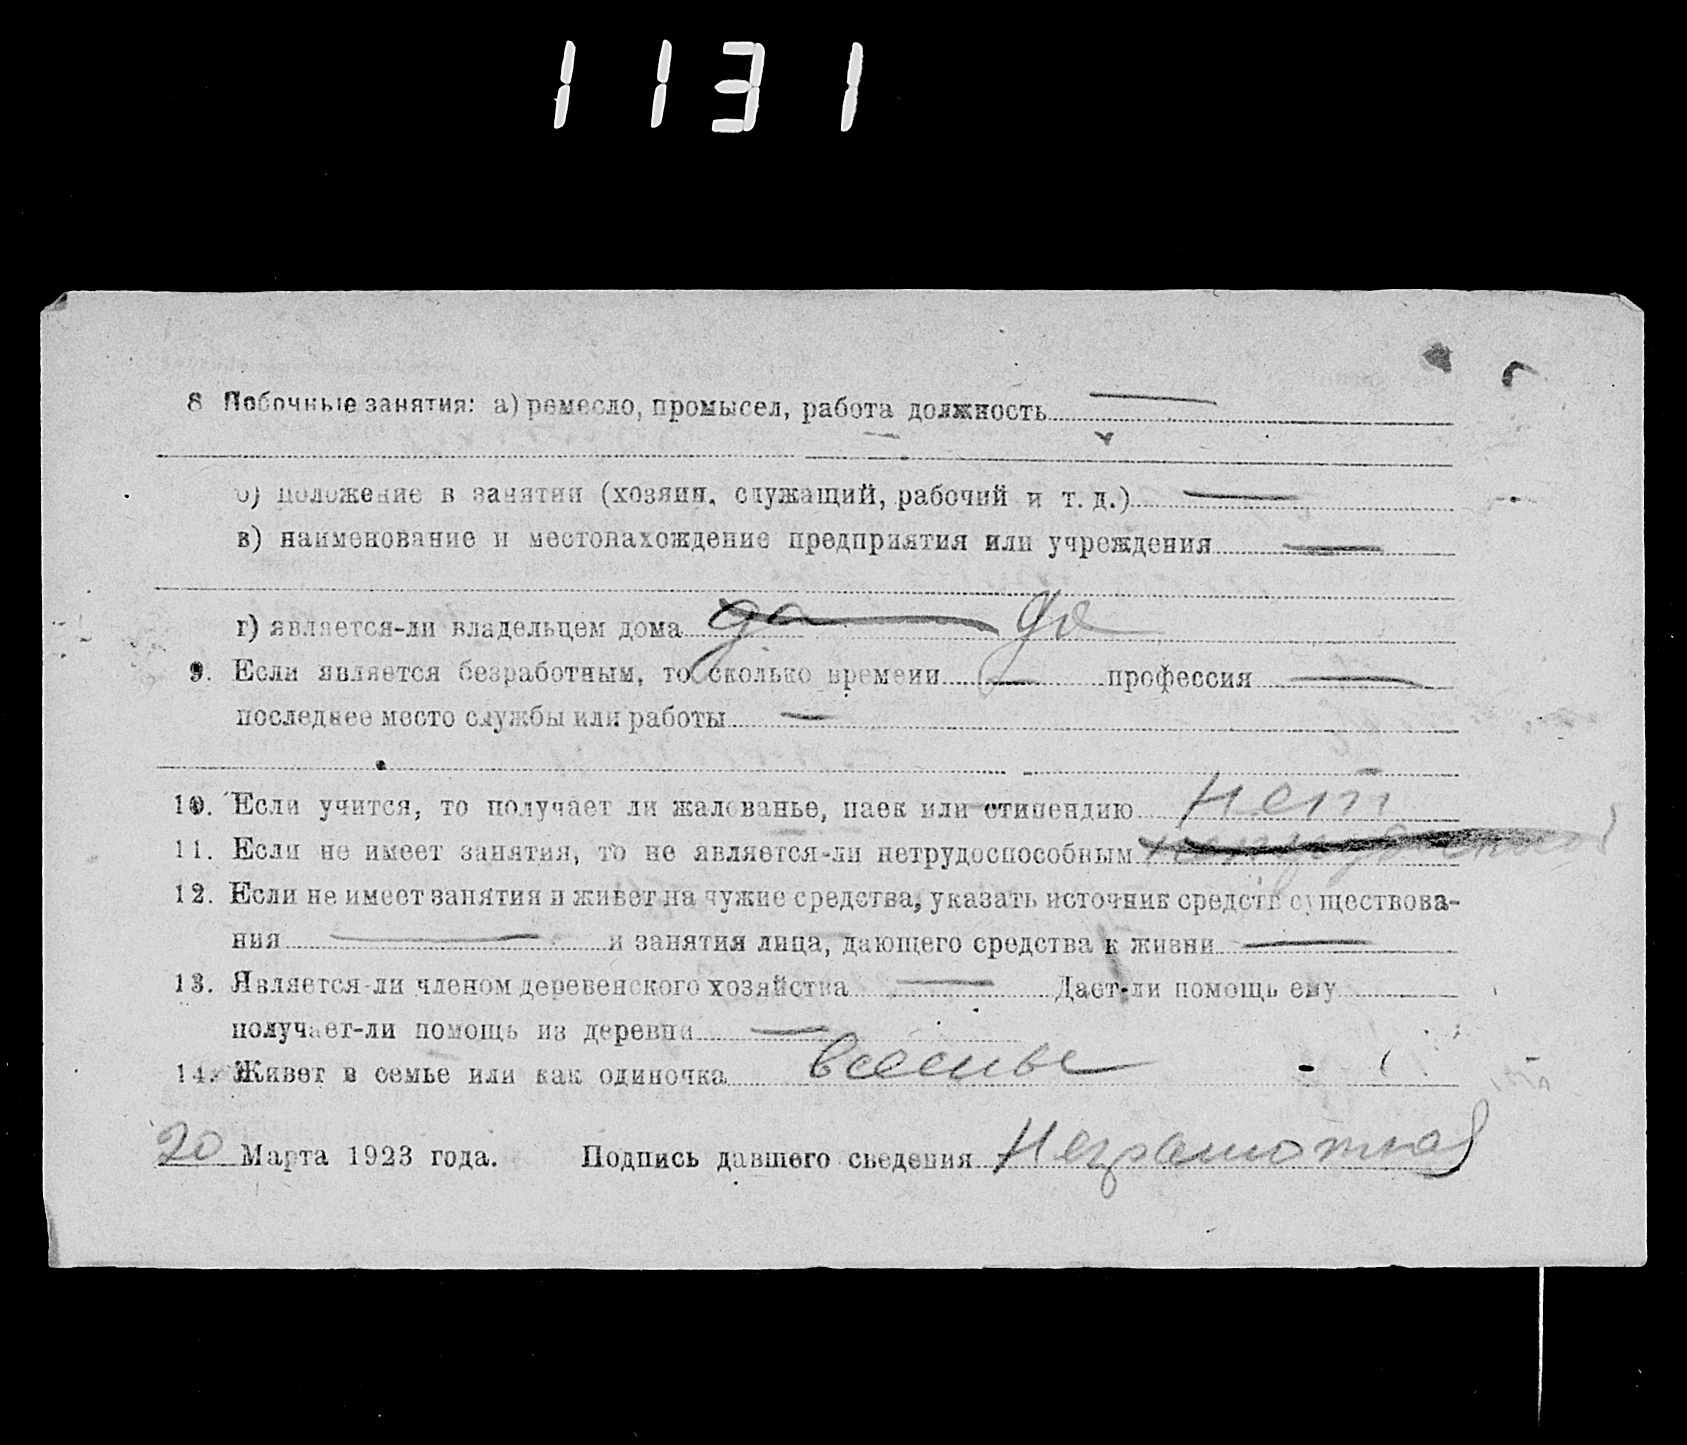 1131
8 Побочные занятия: а) ремесло, промысел, работа должность —
б) положение в занятии (хозяин, служащий, рабочий и т. д.) —
в) наименование и местонахождение предприятия или учреждения —
г) является-ли владельцем дома да — да
9. Если является безработным, то сколько времени — профессия —
последнее место службы или работы —
10. Если учится, то получает ли жалованье, паек или стипендию нет
11. Если не имеет занятия, то не является-ли нетрудоспособным
12. Если не имеет занятия и живет на чужие средства, указать источник средств существова-
ния — и занятия лица, дающего средства к жизни —
13. Является-ли членом деревенского хозяйства — Дает-ли помощь ему
получает-ли помощь из деревни —
14. Живет в семье или как одиночка всемье
20 Марта 1923 года. Подпись давшего сведения Неграмотная